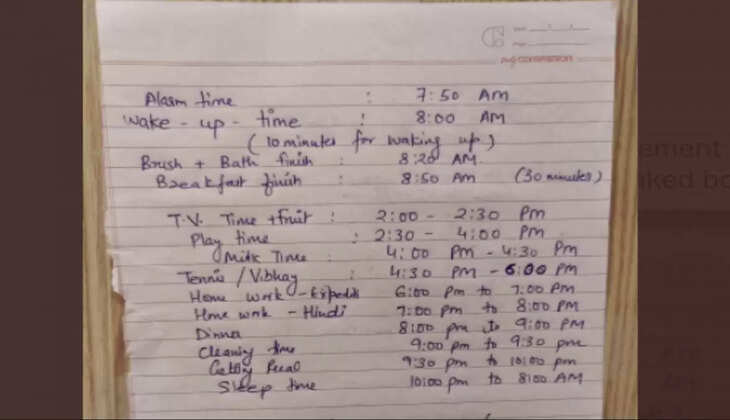 Alarm time : 7:50 AM
Wake - up - time : 8:00 AM
(10 minutes for waking up)
Brush + Bath finish : 8:20 AM
Breakfast finish : 8:50 AM (30 minutes)
T.V. Time + Fruit : 2:00 - 2:30 Pm
Play time : 2:30 - 4:00 Pm
Milk Time : 4:00 PM - 4:30 Pm
Tennis / Vibhay : 4:30 PM - 6:00 pm
Home work - 6:00 Pm to 7:00 Pm
Home work - Hindi 7:00 pm to 8:00 PM
Dinner 8:00 pm to 9:00 PM
Cleaning time 9:00 pm to 9:30 pm
9:30 pm to 10:00 pm
Sleep time 10:00 pm to 8:00 AM